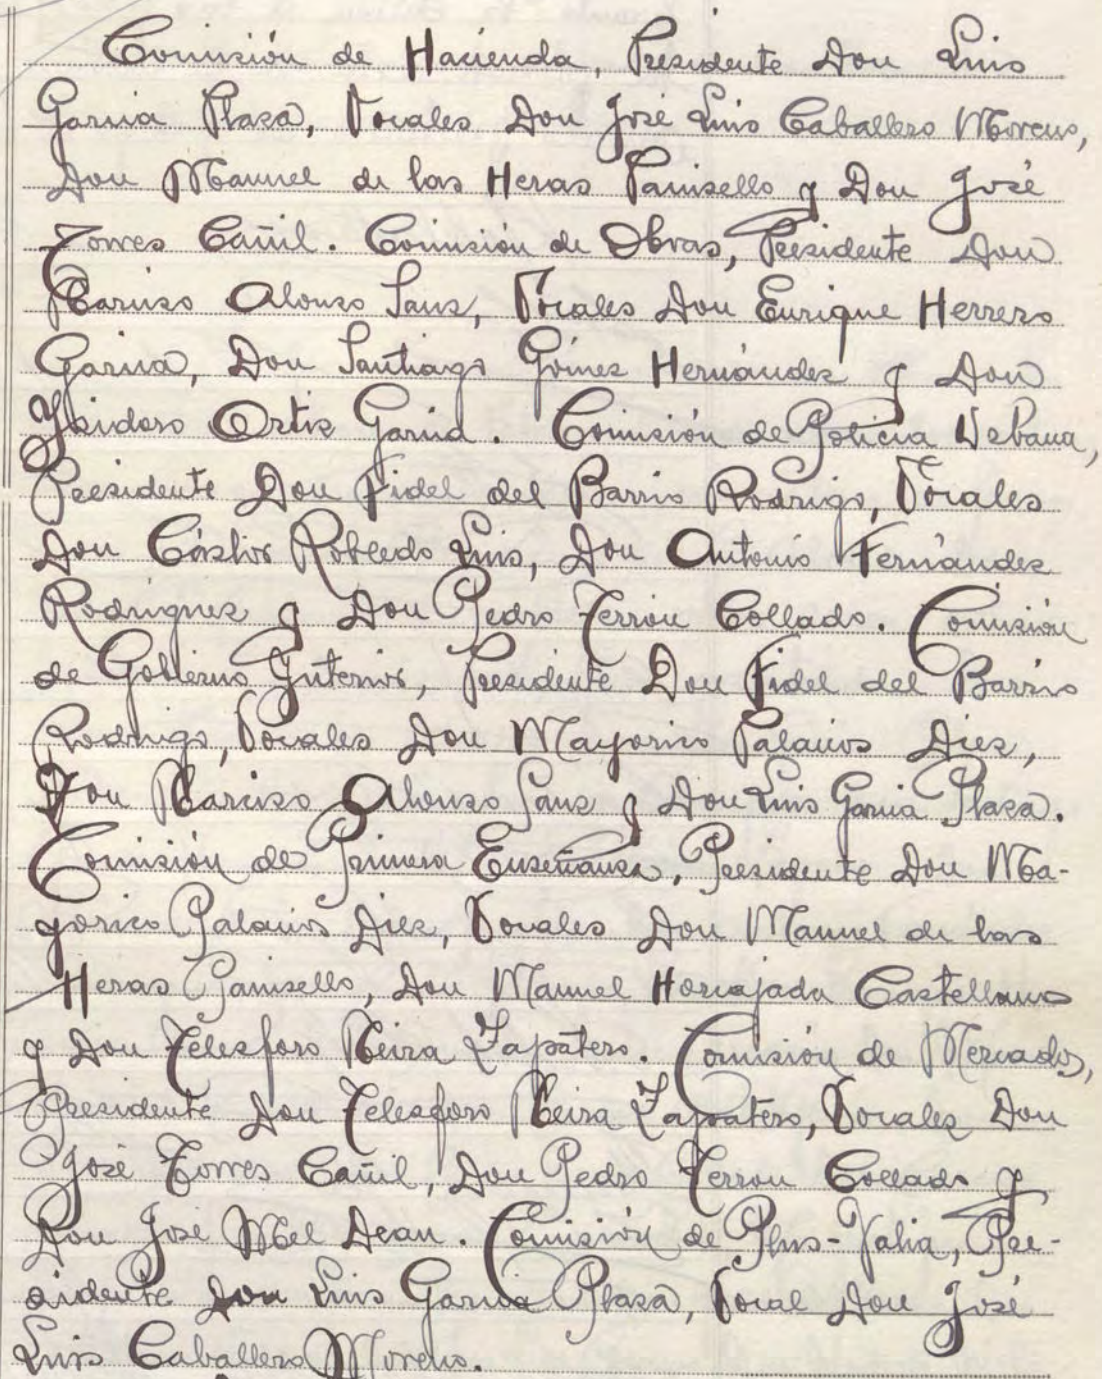 Comisión de Hacienda, Presidente Don Luis
Garcia Plaza, Vocales Don José Luis Caballero Moreno,
Don Manuel de las Heras Panisello y Don José
Torres Cañil. Comisión de Obras, Presidente Don
Narciso Alonso Sanz, Vocales Don Enrique Herrero
Garcia, Don Santiago Gómez Hernández y Don
Ysidoro Ortiz Garcia. Comisión de Policia Urbana,
Presidente Don Fidel del Barrio Rodrigo, Vocales
Don Cástor Robledo Luis, Don Antonio Fernández
Rodriguez y Don Pedro Terrón Collado. Comisión
de Gobierno Ynterior, Presidente Don Fidel del Barrio
Rodrigo, Vocales Don Mayorico Palacios Diez,
Don Narciso Alonso Sanz y Don Luis Garcia Plaza.
Comisión de Primera Enseñanza, Presidente Don Ma-
yorico Palacios Diez, Vocales Don Manuel de las
Heras Panisello, Don Manuel Horcajada Castellano
y Don Telesforo Neira Zapatero. Comisión de Mercados,
Presidente Don Telesforo Neira Zapatero, Vocales Don
José Torres Cañil, Don Pedro Terrón Collado y
Don José Dean. Comisión de Plus-Valia, Pre-
sidente Don Luis Garcia Plaza, Vocal Don José
Luis Caballero Moreno.